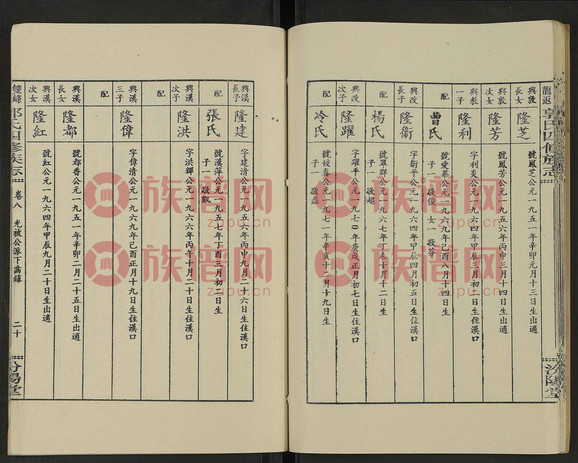 龍返郭氏四修族志
興教長女 隆芝 號鳳芝公元一九五一年辛卯元月十三日生出適
興教次女 隆芳 號鳳芳公元一九五六年丙申三月十四日生出適
興教 隆利 字利炎公元一九六四年甲辰三月十八日生
配 曹氏 號愛華公元一九五四年甲午八月十四日生
子一 啟俊 女一 啟芬
興改長子 隆衛 字衛平公元一九六四年甲辰四月初五日生住漢口
配 楊氏 號翠卿公元一九六七年丁未十月十二日生
子一 啟超
興改次子 隆躍 字躍平公元一九七〇年庚戌正月初七日生住漢口
配 冷氏 號姣春公元一九七一年辛亥十二月十九日生
子一
興漢長子 隆建 字建清公元一九五六年丙申九月二十六日生住漢口
配 張氏 號漢萍公元一九五七年丁酉三月初二日生
子一 啟釵
興漢次子 隆洪 字洪輝公元一九六六年丙午十月二十日生住漢口
配
興漢三子 隆偉 字偉清公元一九六九年己酉正月十九日生住漢口
配
興漢長女 隆都 號都香公元一九五一年辛卯二月二十五日生出適
興漢次女 隆紅 號紅公元一九六四年甲辰九月二十日生出適
郭氏四修族志 卷八 光被公派下齒錄 二十 汾陽堂
汾陽堂
族譜网
zpu.cn
族譜网
zpu.cn
族譜网
zpu.cn
族譜网
zpu.cn